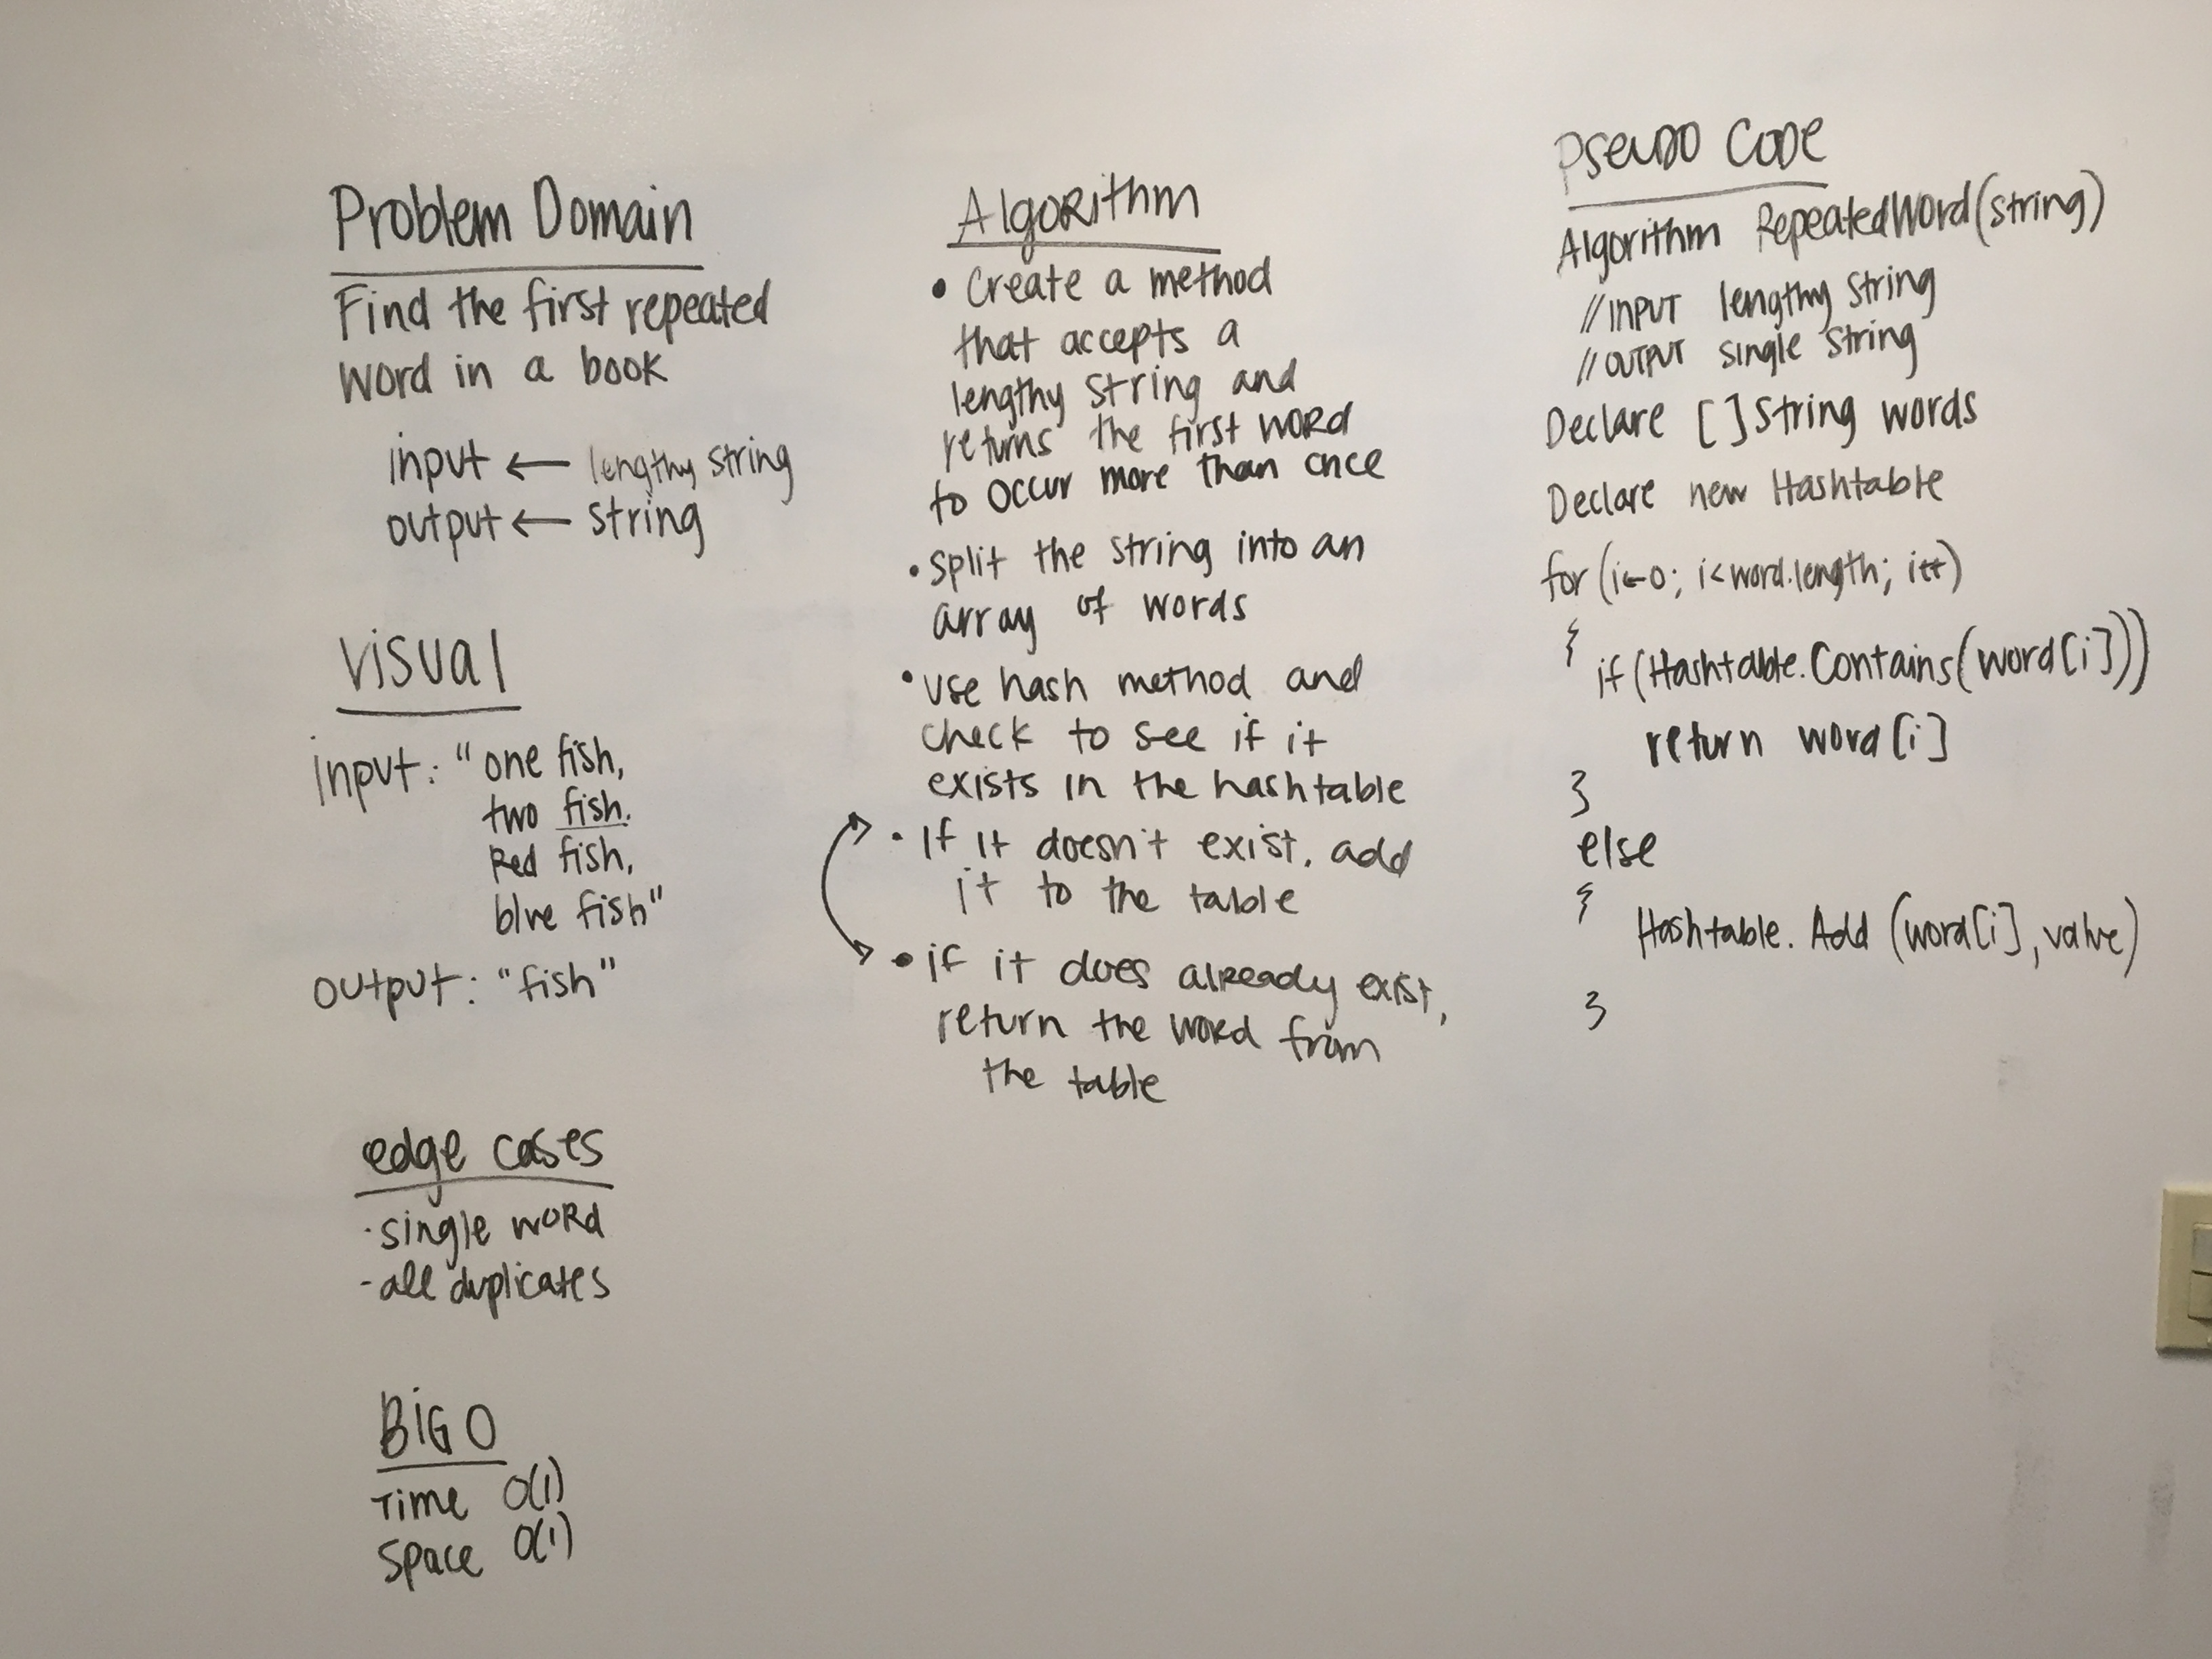 Problem Domain
Find the first repeated
word in a book
input ← lengthy string
output ← string
Visual
input: "one fish,
two fish.
Red fish,
blue fish"
output: "fish"
edge cases
·single word
-all duplicates
BIG O
Time O(1)
Space O(1)
Algorithm
• Create a method
that accepts a
lengthy string and
returns the first word
to occur more than once
• split the string into an
array of words
• use hash method and
check to see if it
exists in the hashtable
• If it doesn't exist, add
it to the table
• if it does already exist,
return the word from
the table
Pseudo Code
Algorithm RepeatedWord(string)
//INPUT lengthy string
//OUTPUT single string
Declare []string words
Declare new Hashtable
for (i←0; i<word.length; i++)
{
if(Hashtable.Contains(word[i]))
return word[i]
}
else
{
Hashtable. Add (word[i], value)
}